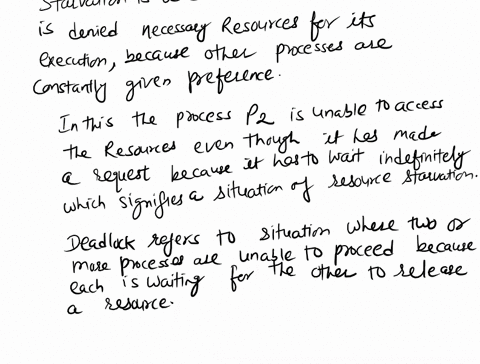 Starvation is a
is denied necessary Resources for its
execution, because other processes are
constantly given preference.
In this the process P2 is unable to access
the Resources even though it has made
a request because it has to wait indefinitely
which signifies a situation of resource starvation.
Deadlock refers to situation where two or
more processes are unable to proceed because
each is waiting for the other to release
a resource.